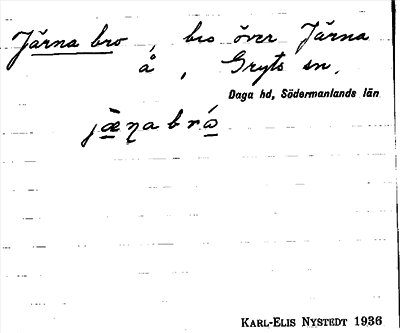 Järna bro, bro över Järna
å, Gryts sn.
Daga hd, Södermanlands län
jæ̀ɳabrá
KARL-ELIS NYSTEDT 1936